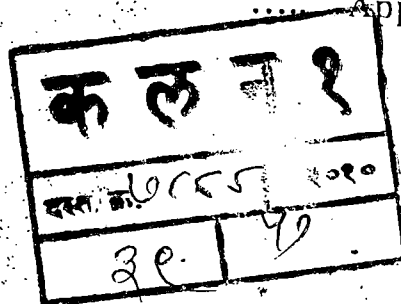 ..... App
क ल न १
दस्त. क्र. ७८८८ २०१०
३९ ५७